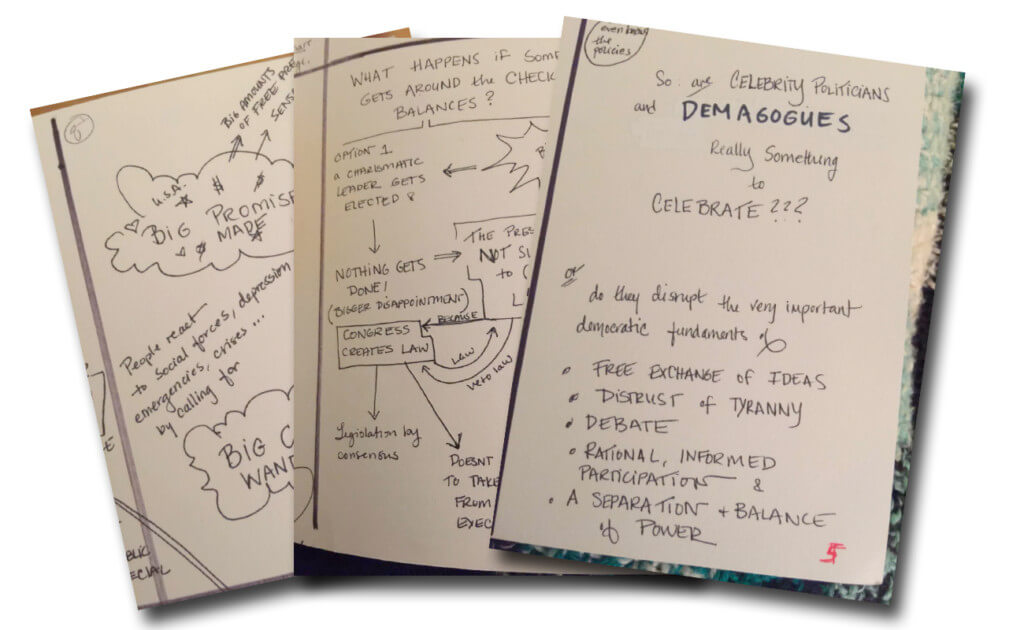 8
BIG AMOUNTS
OF FREE
U.S.A.
BIG PROMISE
MADE
People react
to social forces, depression
emergencies, crises ...
by calling for
BIG C
WANT
BLIC
ECIAL
WHAT HAPPENS if SOME
GETS AROUND the CHECK
BALANCES?
OPTION 1.
a CHARISMATIC
LEADER GETS
ELECTED &
NOTHING GETS
DONE!
(BIGGER DISAPPOINTMENT)
THE PRES
NOT SU
to C
L
BECAUSE
CONGRESS
CREATES LAW
LAW
VETO LAW
Legislation by
consensus
DOESNT
TO TAKE
FROM
EXEC
even know
the
policies
So are CELEBRITY POLITICIANS
and DEMAGOGUES
Really Something
to
CELEBRATE ???
or
do they disrupt the very important
democratic fundaments of
• FREE EXCHANGE of IDEAS
• DISTRUST of TYRANNY
• DEBATE
• RATIONAL, INFORMED
PARTICIPATION &
• A SEPARATION + BALANCE
of POWER
5